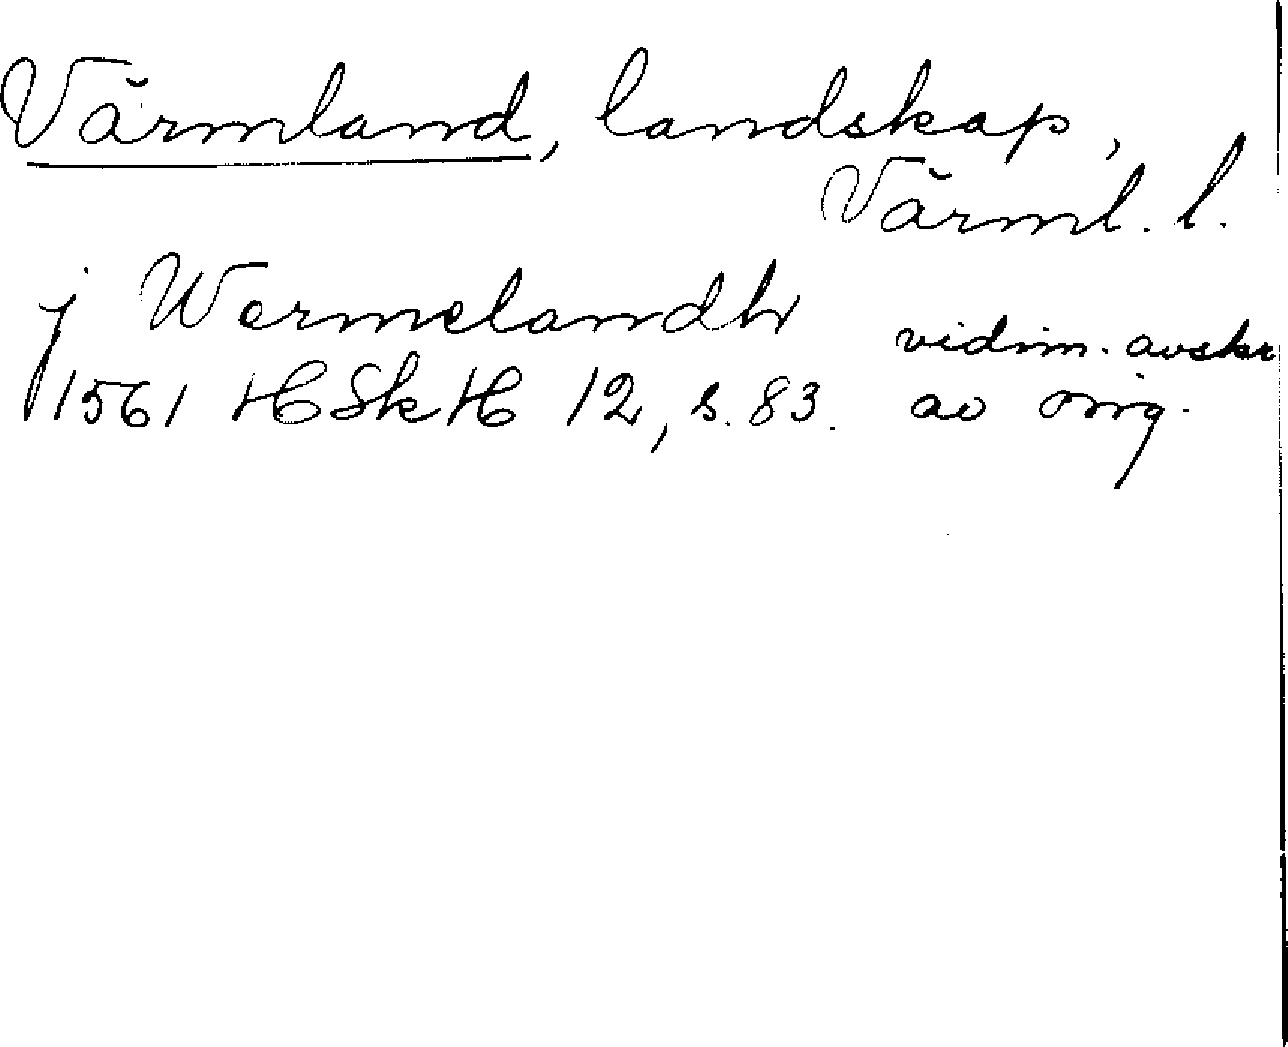 Värmland, landskap,
Värml. l.
j Wermelandh vidim. avskr
1561 HSkH 12, s. 83. av orig.